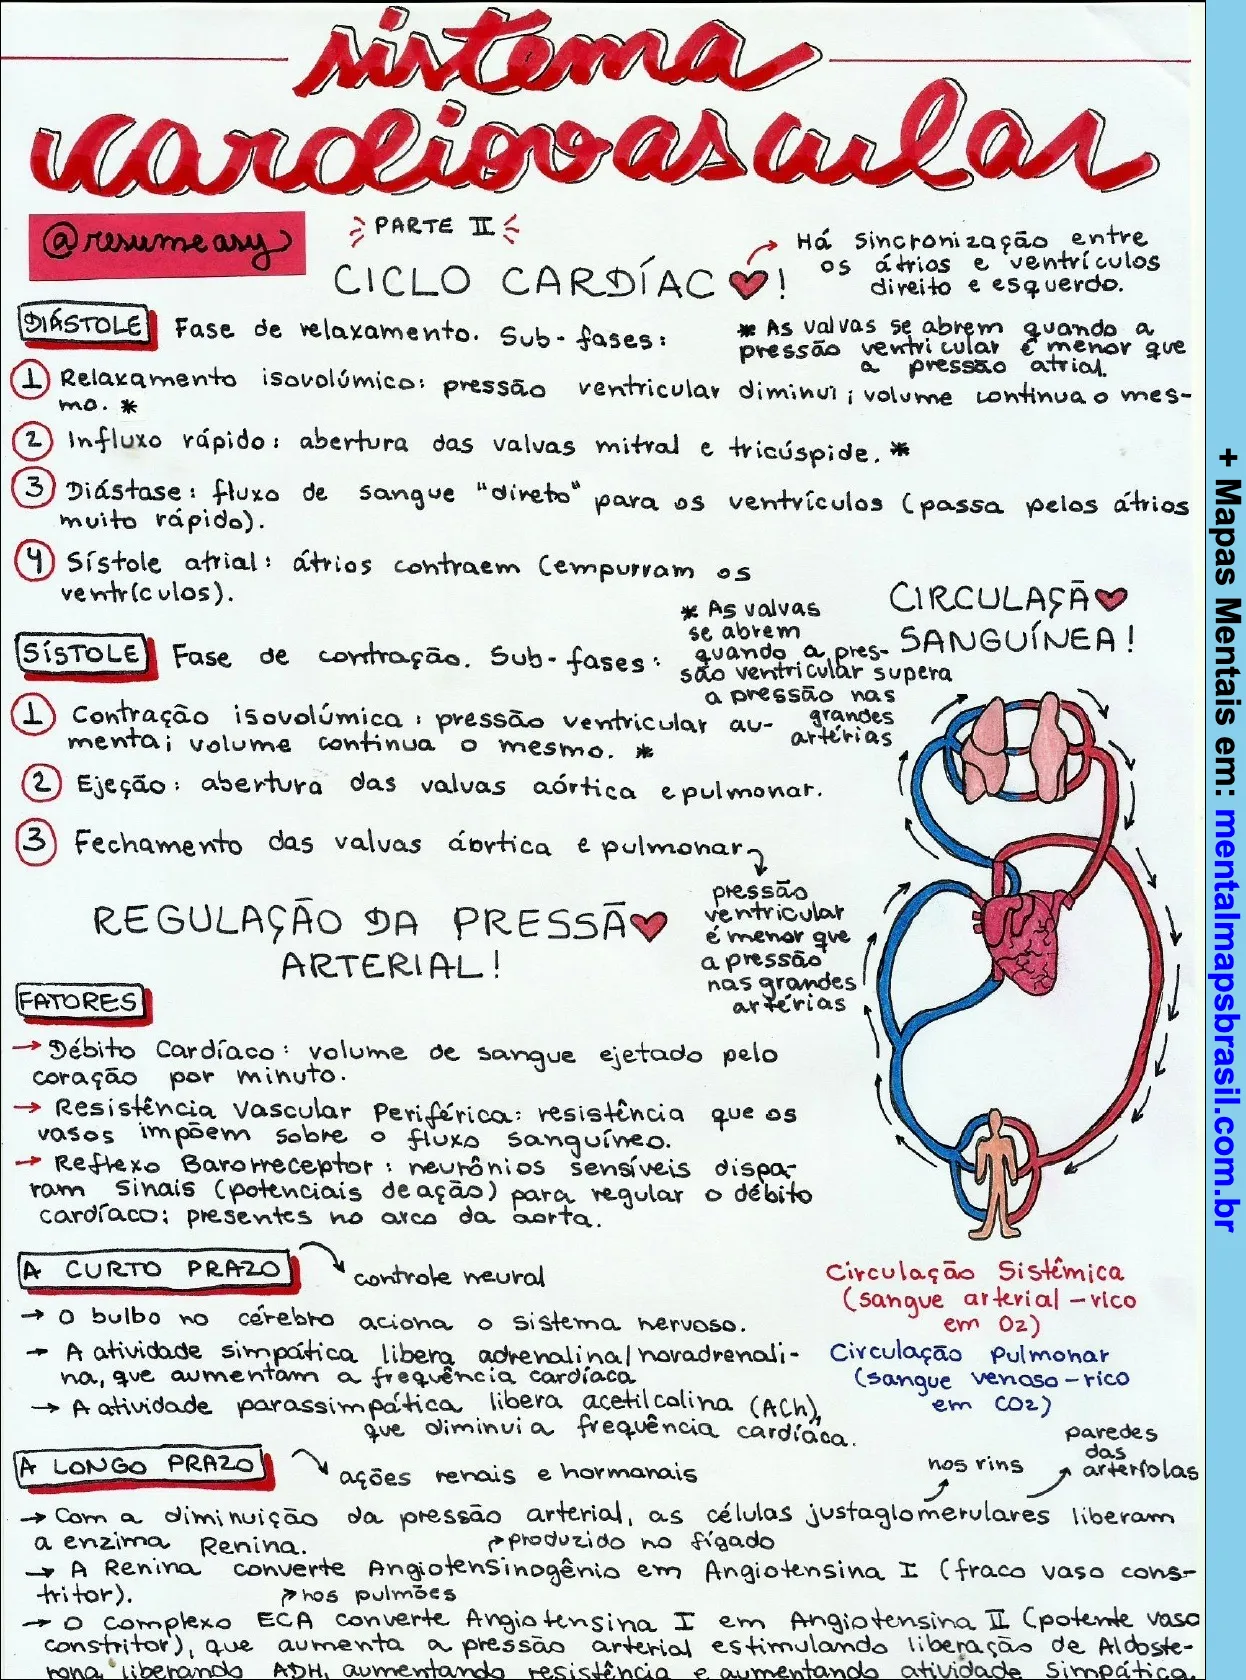 sistema
cardiovascular
@resumeasy
PARTE II
CICLO CARDÍAC♥!
Há sincronização entre
os átrios e ventrículos
direito e esquerdo.
DIÁSTOLE Fase de relaxamento. Sub-fases:
* As valvas se abrem quando a
pressão ventricular é menor que
a pressão atrial.
1 Relaxamento isovolúmico: pressão ventricular diminui; volume continua o mes-
mo. *
2 Influxo rápido: abertura das valvas mitral e tricúspide. *
3 Diástase: fluxo de sangue "direto" para os ventrículos (passa pelos átrios
muito rápido).
4 Sístole atrial: átrios contraem (empurram os
ventrículos).
SÍSTOLE Fase de contração. Sub-fases:
* As valvas
se abrem
quando a pres-
são ventricular supera
a pressão nas
grandes
artérias
1 Contração isovolúmica: pressão ventricular au-
menta; volume continua o mesmo. *
2 Ejeção: abertura das valvas aórtica e pulmonar.
3 Fechamento das valvas áortica e pulmonar
pressão
ventricular
é menor que
a pressão
nas grandes
artérias
CIRCULAÇÃ♥
SANGUÍNEA!
REGULAÇÃO DA PRESSÃ♥
ARTERIAL!
FATORES
→ Débito Cardíaco: volume de sangue ejetado pelo
coração por minuto.
→ Resistência Vascular Periférica: resistência que os
vasos impõem sobre o fluxo sanguíneo.
→ Reflexo Barorreceptor: neurônios sensíveis dispa-
ram sinais (potenciais de ação) para regular o débito
cardíaco; presentes no arco da aorta.
A CURTO PRAZO
controle neural
→ O bulbo no cérebro aciona o sistema nervoso.
→ A atividade simpática libera adrenalina/noradrenali-
na, que aumentam a frequência cardíaca
→ A atividade parassimpática libera acetilcolina (ACh),
que diminui a frequência cardíaca.
Circulação Sistêmica
(sangue arterial - rico
em O2)
Circulação Pulmonar
(sangue venoso - rico
em CO2)
A LONGO PRAZO
ações renais e hormonais
nos rins
paredes
das
arteríolas
→ Com a diminuição da pressão arterial, as células justaglomerulares liberam
a enzima Renina.
produzido no fígado
→ A Renina converte Angiotensinogênio em Angiotensina I (fraco vaso cons-
tritor).
nos pulmões
→ O complexo ECA converte Angiotensina I em Angiotensina II (potente vaso
constritor), que aumenta a pressão arterial estimulando liberação de Aldoste-
rona, liberando ADH, aumentando resistência e aumentando atividade simpática.
+ Mapas Mentais em: mentalmapsbrasil.com.br